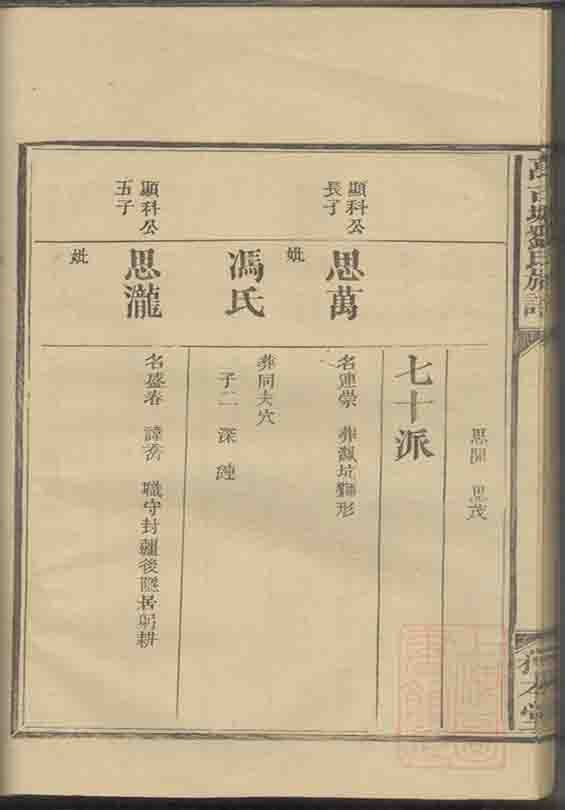 劉氏族譜
思開 思茂
七十派
顯科公
長子
思萬
名連榮 葬瓢坑獅形
妣
馮氏
葬同夫穴
子二 深 
顯科公
五子
思瀧
名盛春 諱 職守封疆後隱居躬耕
妣
本堂